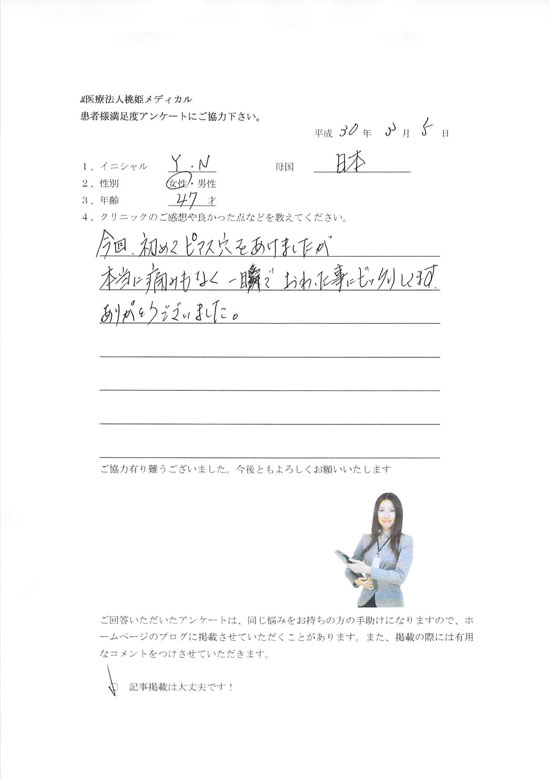 医療法人桃姫メディカル
患者様満足度アンケートにご協力下さい。
平成 30 年 3 月 5 日
1、イニシャル Y.N 母国 日本
2、性別 女性・男性
3、年齢 47 才
4、クリニックのご感想や良かった点などを教えてください。
今回、初めてピアス穴をあけましたが
本当に痛みもなく一瞬でおわった事にビックリしてます。
ありがとうございました。
ご協力有り難うございました。今後ともよろしくお願いいたします
ご回答いただいたアンケートは、同じ悩みをお持ちの方の手助けになりますので、ホ
ームページのブログに掲載させていただくことがあります。また、掲載の際には有用
なコメントをつけさせていただきます。
□ 記事掲載は大丈夫です！